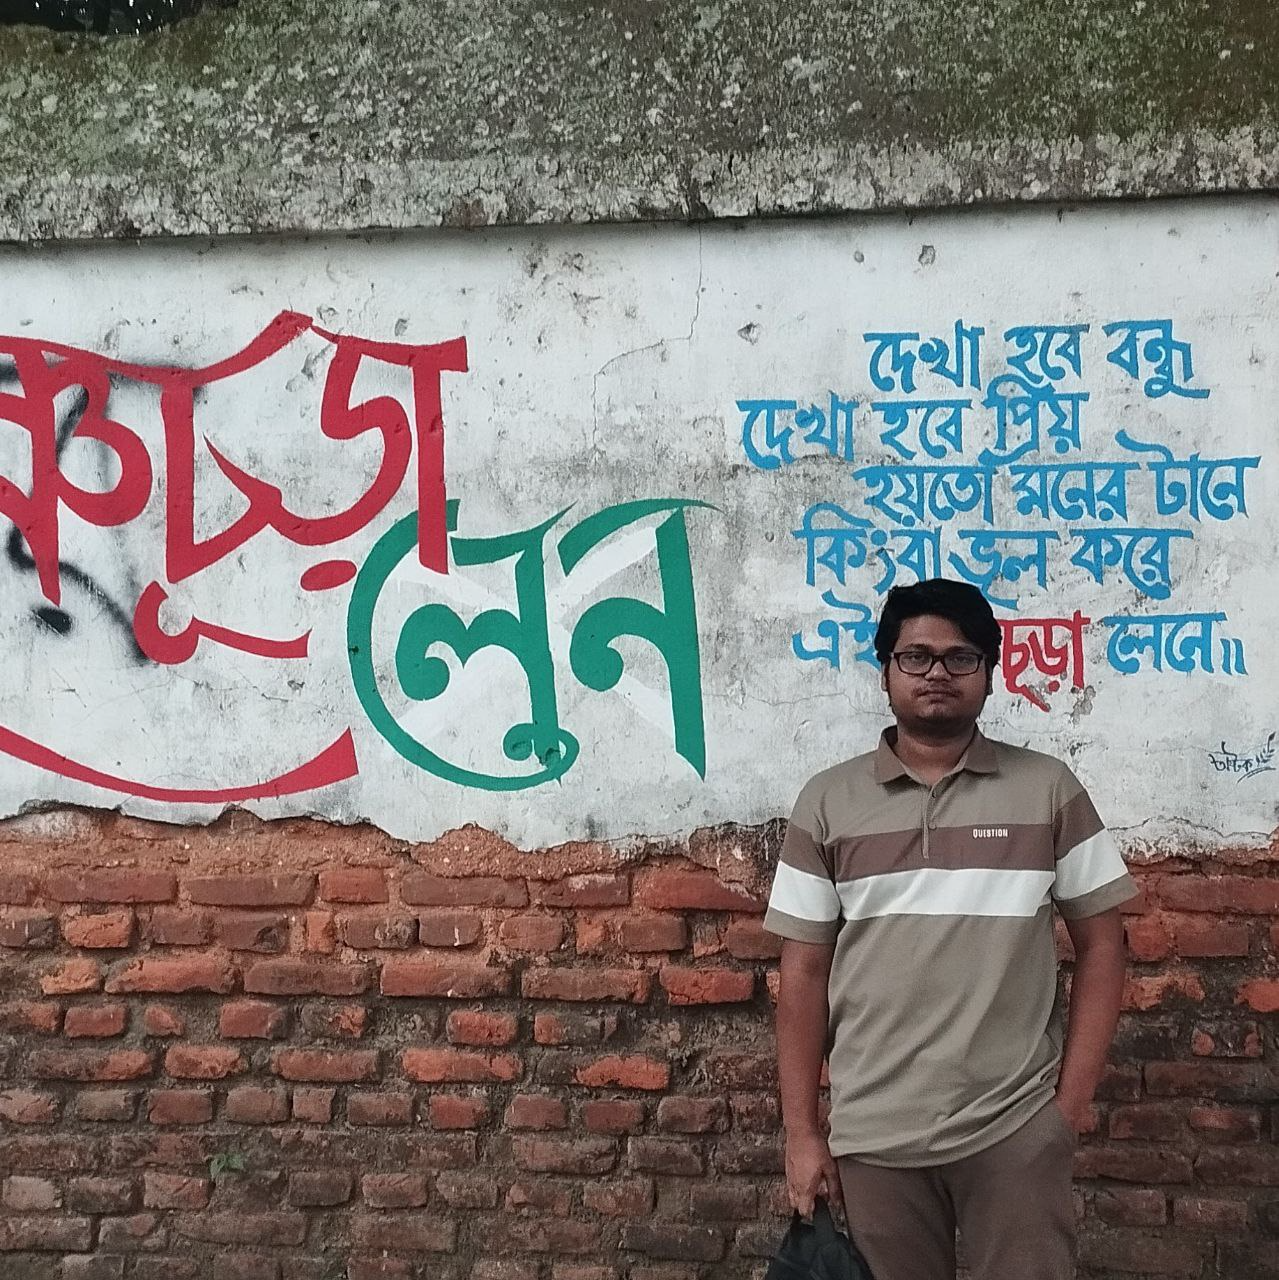 লেন
দেখা হবে বন্ধু
দেখা হবে প্রিয়
হয়তো মনের টানে
কিংবা ভূল করে
এই চূড়া লেনে॥
QUESTION